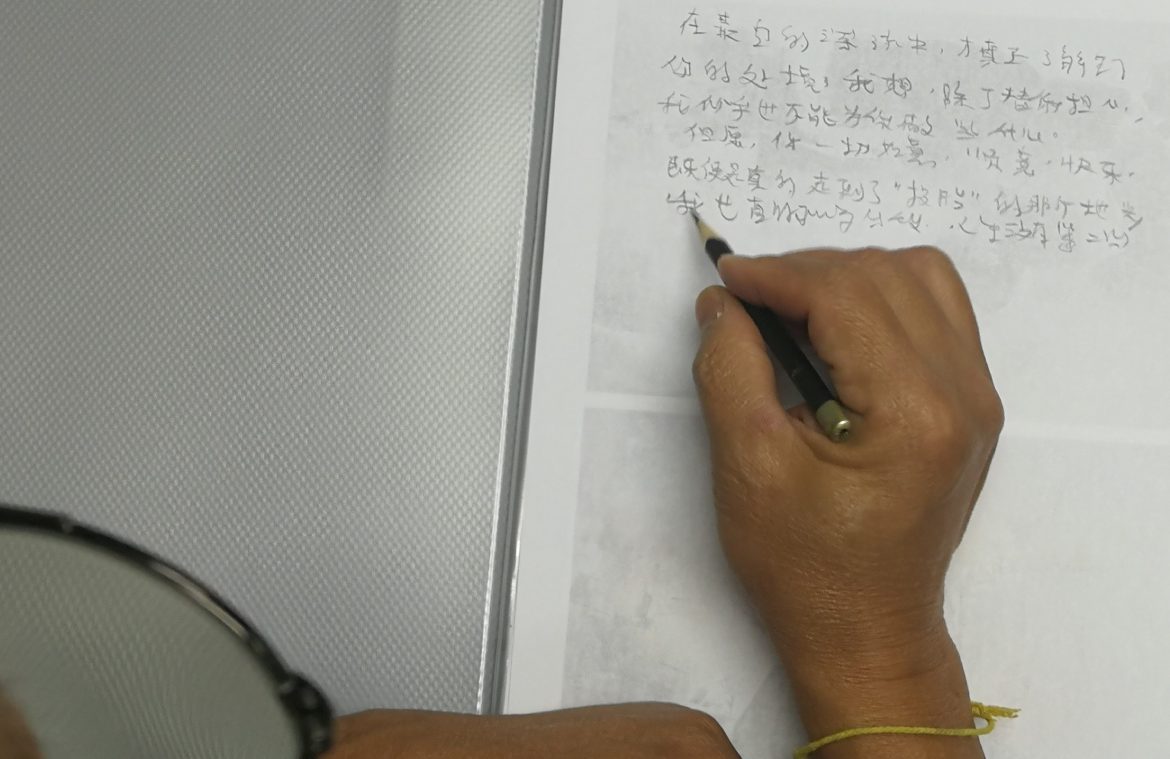 在
的深
中,才真正了解到
你的处境,我想,除了替你担心,
我似乎也不能为你做些什么。
但愿,你一切如意,顺意,快乐.
既使是真的走到了“投胎”的那个地步
我也真的
人生没有第二次